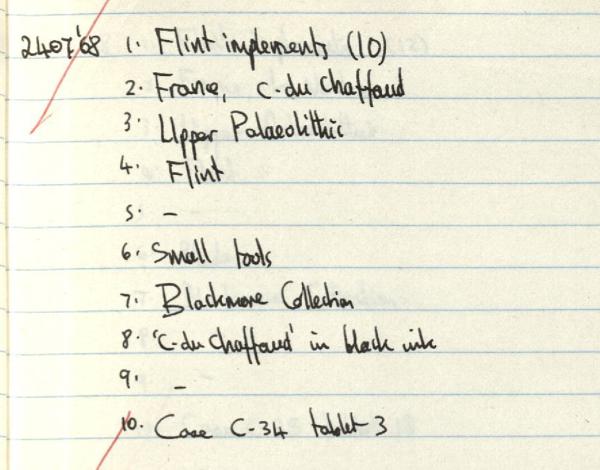 2407'68 1. Flint implements (10)
2. France, C-du Chaffaud
3. Upper Palaeolithic
4. Flint
5. -
6. Small tools
7. Blackmore Collection
8. 'C-du Chaffaud' in black ink
9. -
10. Case C-34 tablet 3